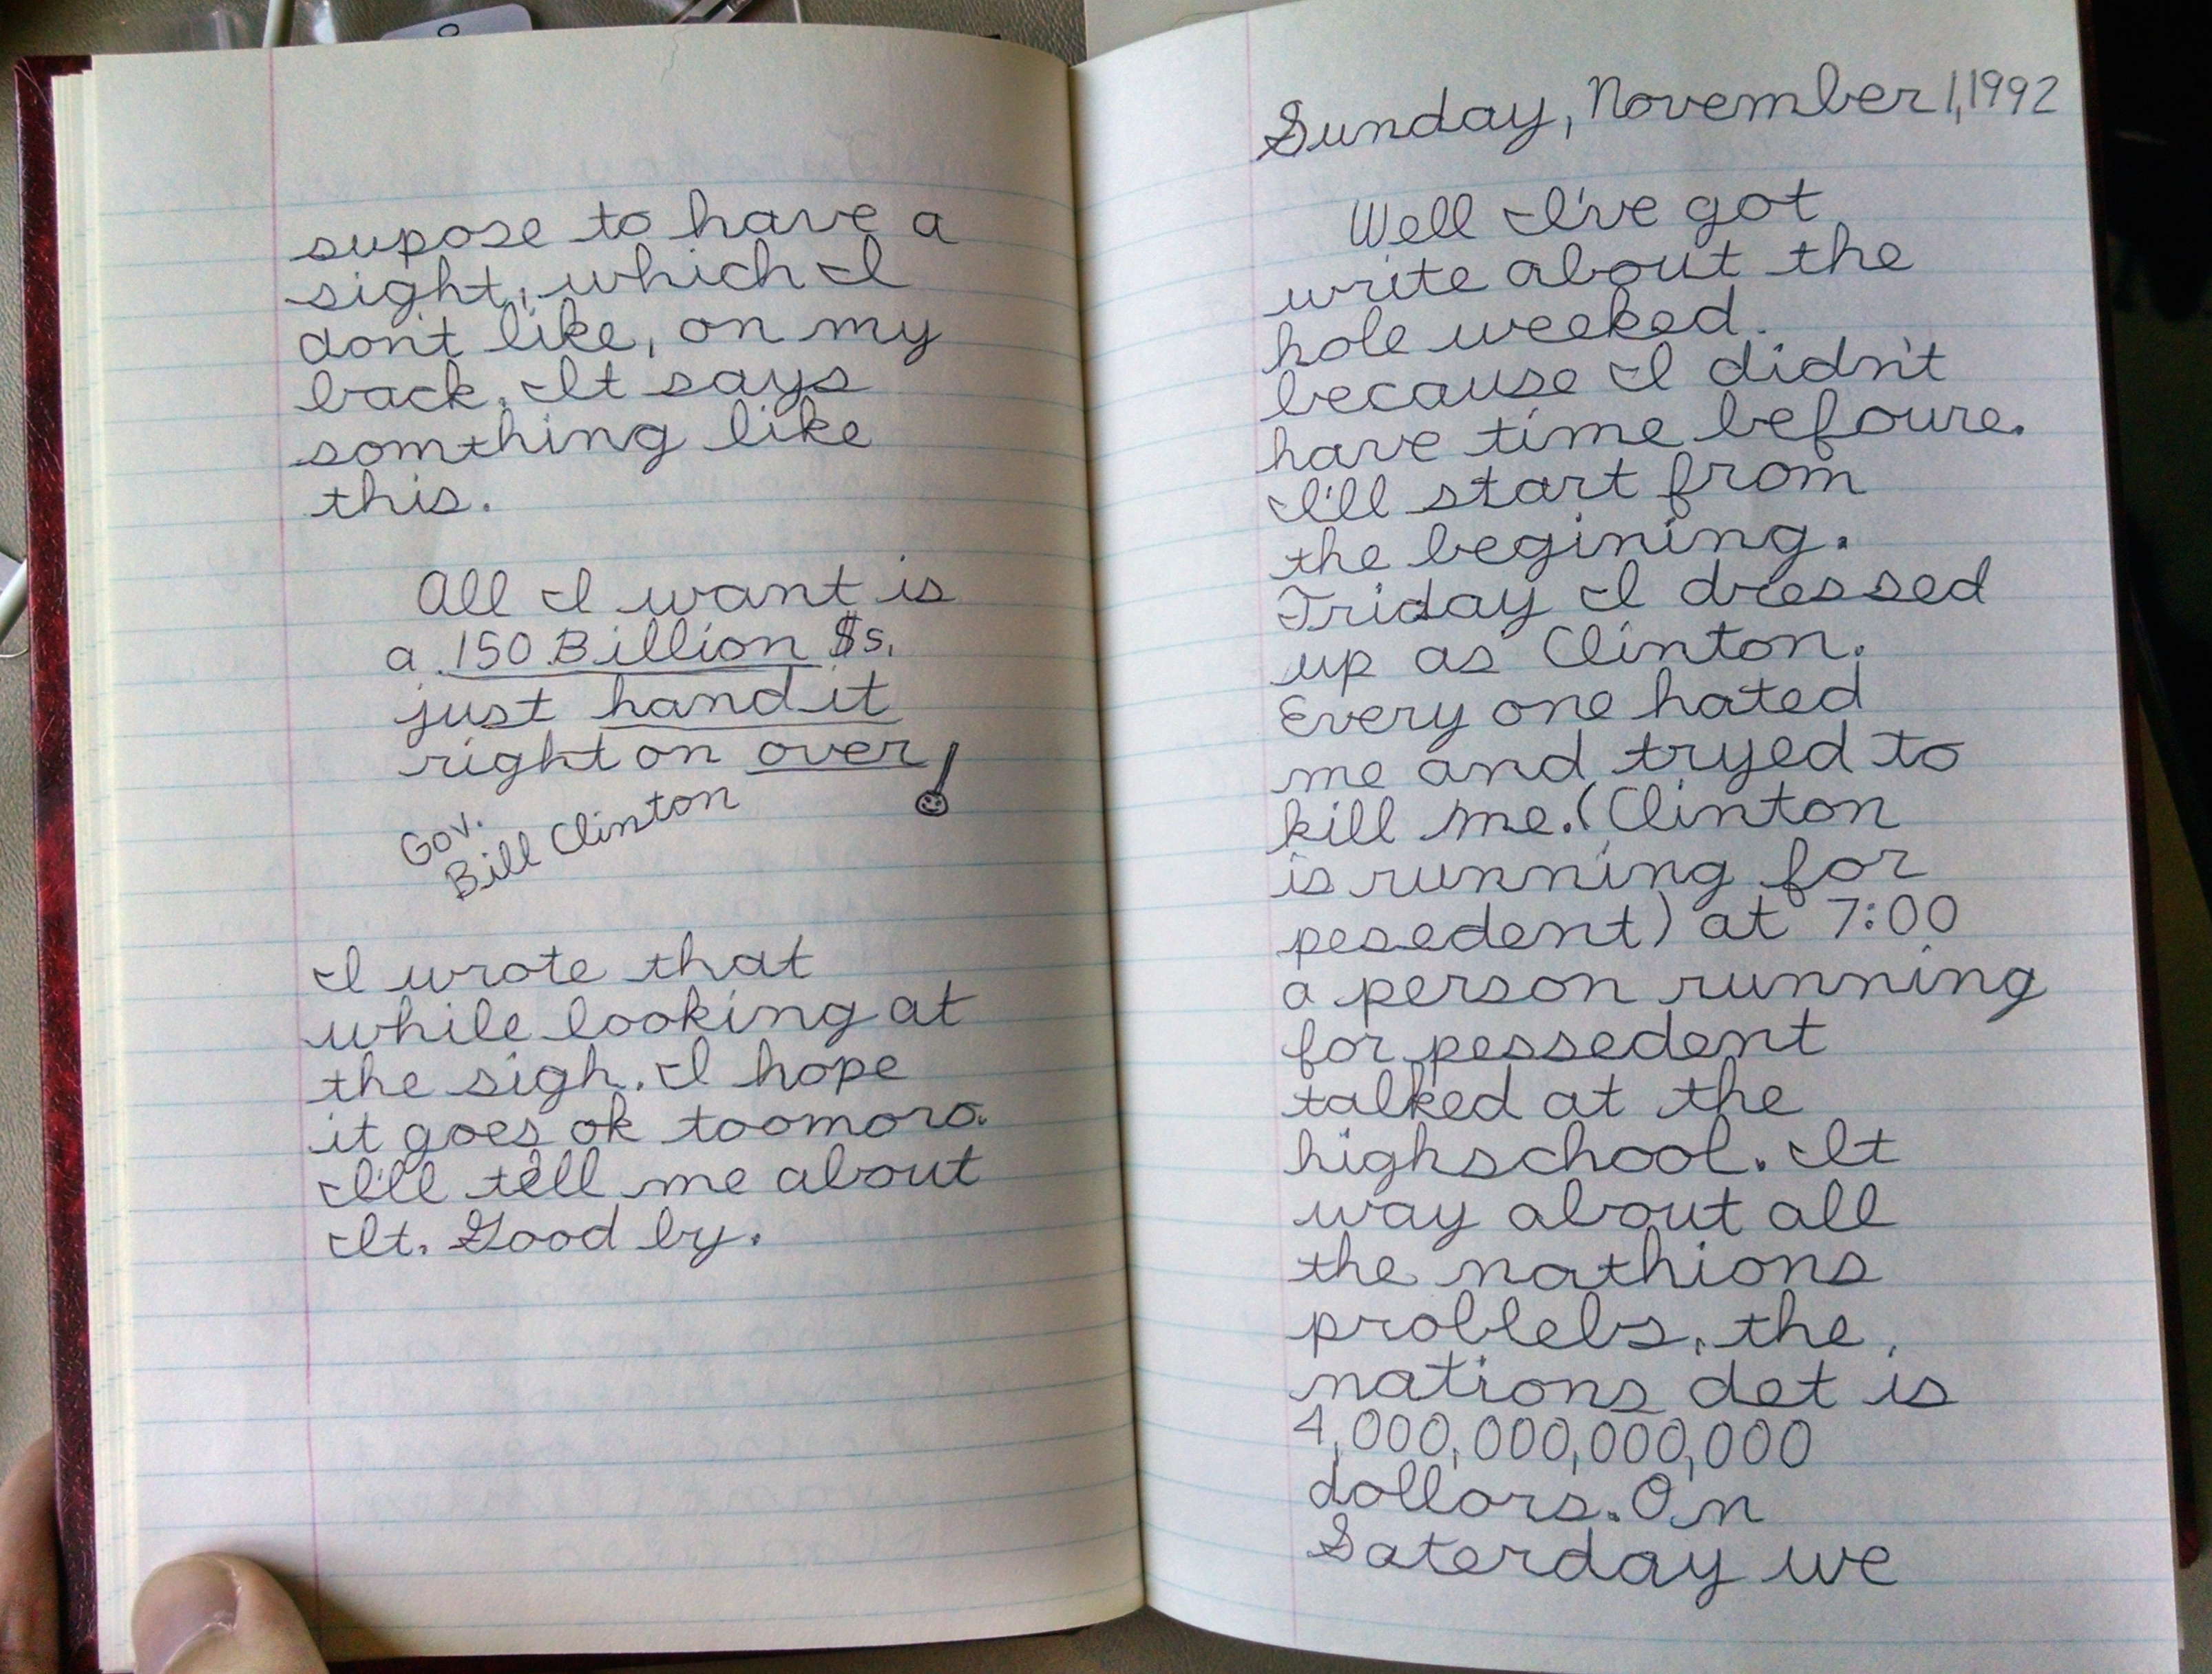 supose to have a
sight, which I
don't like, on my
back. It says
somthing like
this.
All I want is
a 150 Billion $s,
just hand it
right on over!
Gov.
Bill Clinton
I wrote that
while looking at
the sigh. I hope
it goes ok toomoro.
I'll tell me about
It. Good by.
Sunday, November 1, 1992
Well I've got
write about the
hole weeked.
because I didn't
have time befoure.
I'll start from
the begining.
Friday I dressed
up as Clinton.
Every one hated
me and tryed to
kill me. (Clinton
is running for
pesedent) at 7:00
a person running
for pessedent
talked at the
highschool. It
way about all
the nathions
problebs, the
nations det is
4,000,000,000,000
dollors. On
Saterday we